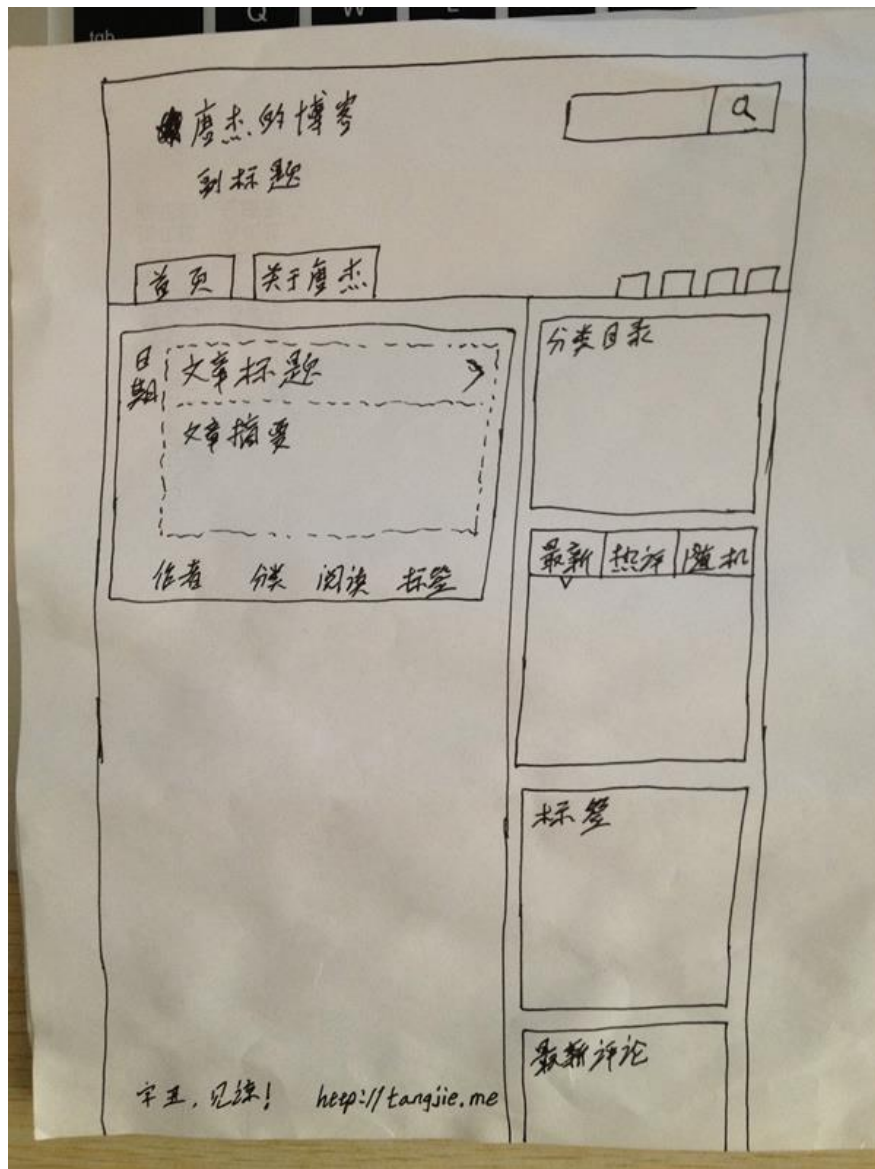 唐杰的博客
副标题
首页
关于唐杰
日期
文章标题
文章摘要
作者 分类 阅读 标签
分类目录
最新 热评 随机
标签
最新评论
字丑，见谅！ http://tangjie.me
tab
Q W E